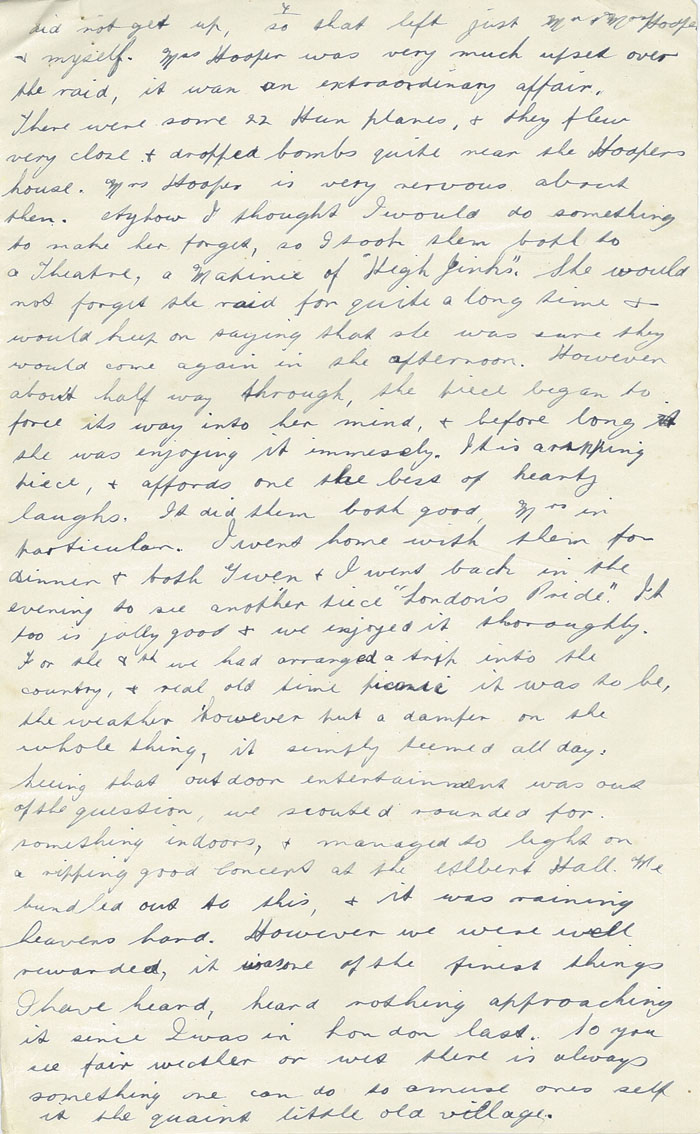 4
did not get up, so that left just Mr & Mrs Hooper
& myself. Mrs Hooper was very much upset over
the raid, it was an extraordinary affair.
There were some 22 Hun planes, & they flew
very close & dropped bombs quite near the Hoopers
house. Mrs Hooper is very nervous about
then. Ayhow I thought I would do something
to make her forget, so I took them both to
a Theatre, a Matinee of "High Jinks". She would
not forget the raid for quite a long time &
would keep on saying that she was sure they
would come again in the afternoon. However
about half way through, the piece began to
force its way into her mind, & before long
she was enjoying it immesely. It is a ripping
piece, & affords one the best of hearty
laughs. It did them both good, Mrs in
particular. I went home with them for
dinner & both Gwen & I went back in the
evening to see another piece "London's Pride". It
too is jolly good & we enjoyed it thoroughly.
For the 8th we had arranged a trip into the
country, & real old time picnic it was to be,
the weather however put a damper on the
whole thing, it simply teemed all day:
being that outdoor entertainment was out
of the question, we scouted rounded for
something indoors, & managed to light on
a ripping good Concert at the Albert Hall. We
bundled out to this, & it was raining
heavens hard. However we were well
rewarded, it was one of the finest things
I have heard, heard nothing approaching
it since I was in London last. So you
see fair weather or wet there is always
something one can do to amuse ones self
it the quaint little old village.